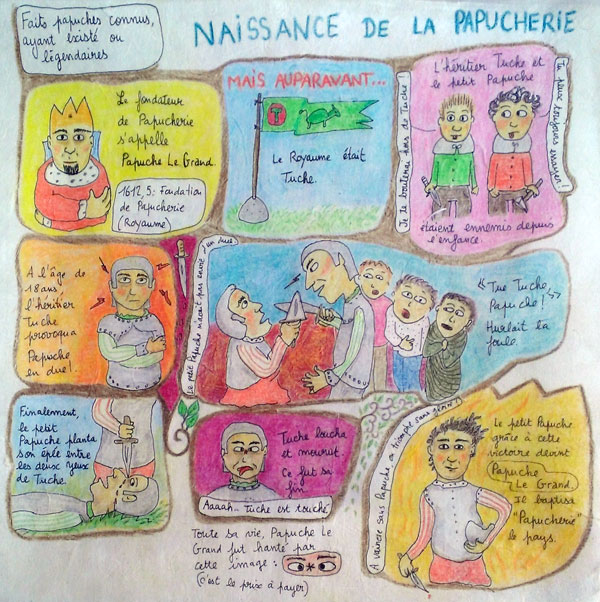 Faits papuches connus,
ayant existé ou
légendaires
NAISSANCE DE LA PAPUCHERIE
Le fondateur
de Papucherie
s'appelle
Papuche Le Grand.
1612,5: Fondation
de Papucherie
(Royaume)
MAIS AUPARAVANT...
T
Le Royaume était
Tuche.
L'héritier Tuche et
le petit Papuche
Je te bouterai hors de Tuche!
Tu peux toujours essayer!
étaient ennemis depuis
l'enfance.
A l'âge de
18 ans,
l'héritier
Tuche
provoqua
Papuche
en duel.
Le petit Papuche n'avait pas envie d'un duel.
"Tue Tuche,
Papuche!"
Hurlait la
foule.
Finalement,
le petit
Papuche planta
son épée entre
les deux yeux
de Tuche.
Tuche loucha
et mourut.
Ce fut sa
fin
Aaaah... Tuche est touché
Toute sa vie, Papuche Le
Grand fut hanté par
cette image:
(c'est le prix à payer)
A vaincre sans Papuche on triomphe sans gloire!
Le petit Papuche
grâce à cette
victoire devint
Papuche
Le Grand.
Il baptisa
"Papucherie"
le pays.